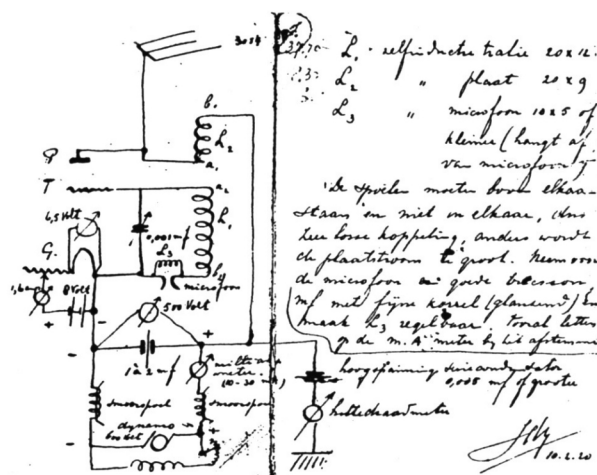 b.
L₂
a.
P
T
a₂
L₁
0,001 mf
4,5 Volt
G.
L₃
microfoon
8 Volt
500 Volt
+
-
1 à 2 mf
meter
smoorspoel
smoorspoel
dynamo
600 Volt
L₁ . zelfinductie tralie 20 x 12
L₂ " plaat 20 x 9
L₃ " microfoon 10 x 5 of
kleiner (hangt af
van microfoon
De spoelen moeten boven elkaar
staan en niet in elkaar, dus
zeer losse koppeling, anders wordt
de plaatstroom te groot. Neem voor
de microfoon goede
met fijne korrel (glanzend) en
maak L₃ regelbaar. Vooral letten
op de m.A meter bij het afstemmen
hoogspanning seriecondensator
0,005 mf of grooter
hittedraadmeter
10.2.20